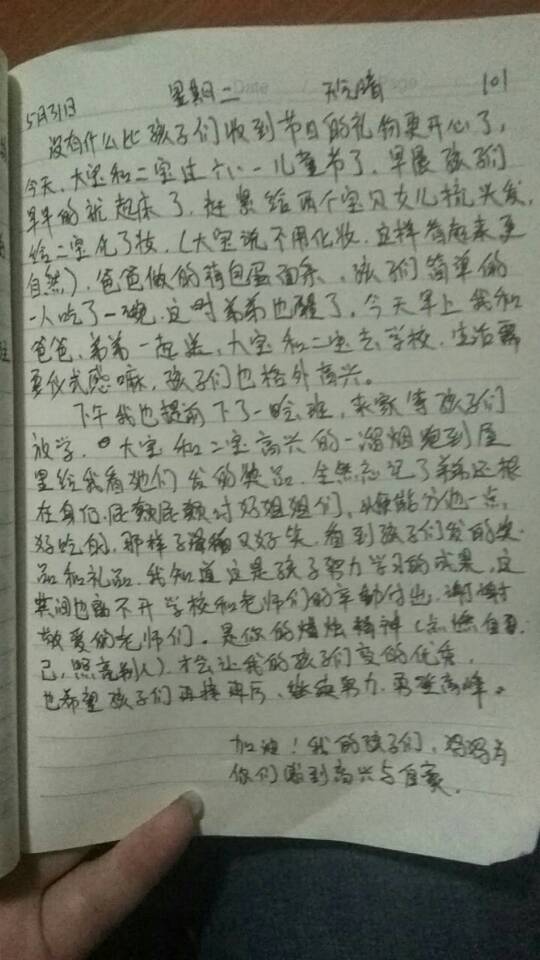 5月31日 星期二 天气晴 101
Date Page
没有什么比孩子们收到节日的礼物更开心了,
今天,大宝和二宝过六一儿童节了,早晨孩子们
早早的就起床了,赶紧给两个宝贝女儿梳头发,
给二宝化了妆,(大宝说不用化妆,这样看起来更
自然),爸爸做的荷包蛋面条,孩子们简单的
一人吃了一碗,这时弟弟也醒了,今天早上我和
爸爸,弟弟一起送,大宝和二宝去学校,生活需
要仪式感嘛,孩子们也格外高兴。
下午我也提前下了一会班,来家等孩子们
放学,大宝和二宝高兴的一溜烟跑到屋
里给我看她们发的奖品,全然忘记了弟弟还跟
在身后,屁颠屁颠讨好姐姐们,能分他一点
好吃的,那样子又好笑,看到孩子们发的奖
品和礼品,我知道这是孩子努力学习的成果,这
其间也离不开学校和老师们的辛勤付出,谢谢
敬爱的老师们,是你的蜡烛精神(点燃自
己,照亮别人),才会让我的孩子们变的优秀,
也希望孩子们再接再厉,继续努力,勇登高峰。
加油!我的孩子们,妈妈为
你们感到高兴与自豪.